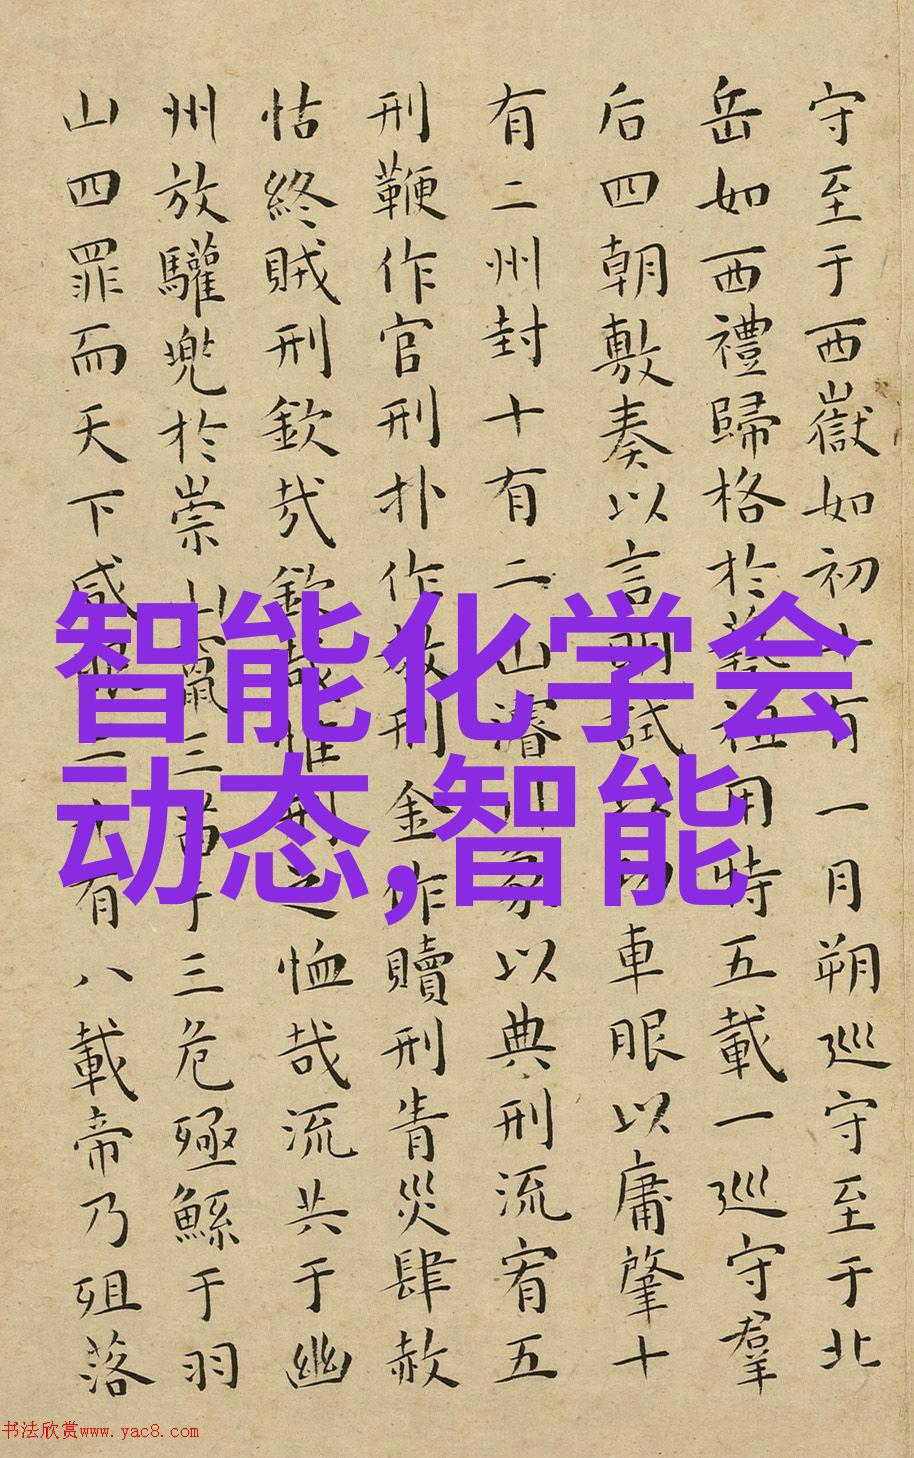 守至于西嶽如初十有一月朔巡守至于北
岳如西禮歸格於藝祖用特五載一巡守羣
后四朝敷奏以言明試以功車眼以庸肇十
有二州封十有二山濬川象以典刑流宥五
刑鞭作官刑扑作教刑金作贖刑眚災肆赦
怙終賊刑欽哉欽哉惟刑之恤哉流共于幽
州放驩兜於崇山竄三苗于三危殛鯀于羽
山四罪而天下咸服二十有八載帝乃殂落
智能化学会
动态,智能
书法欣赏www.yac8.com